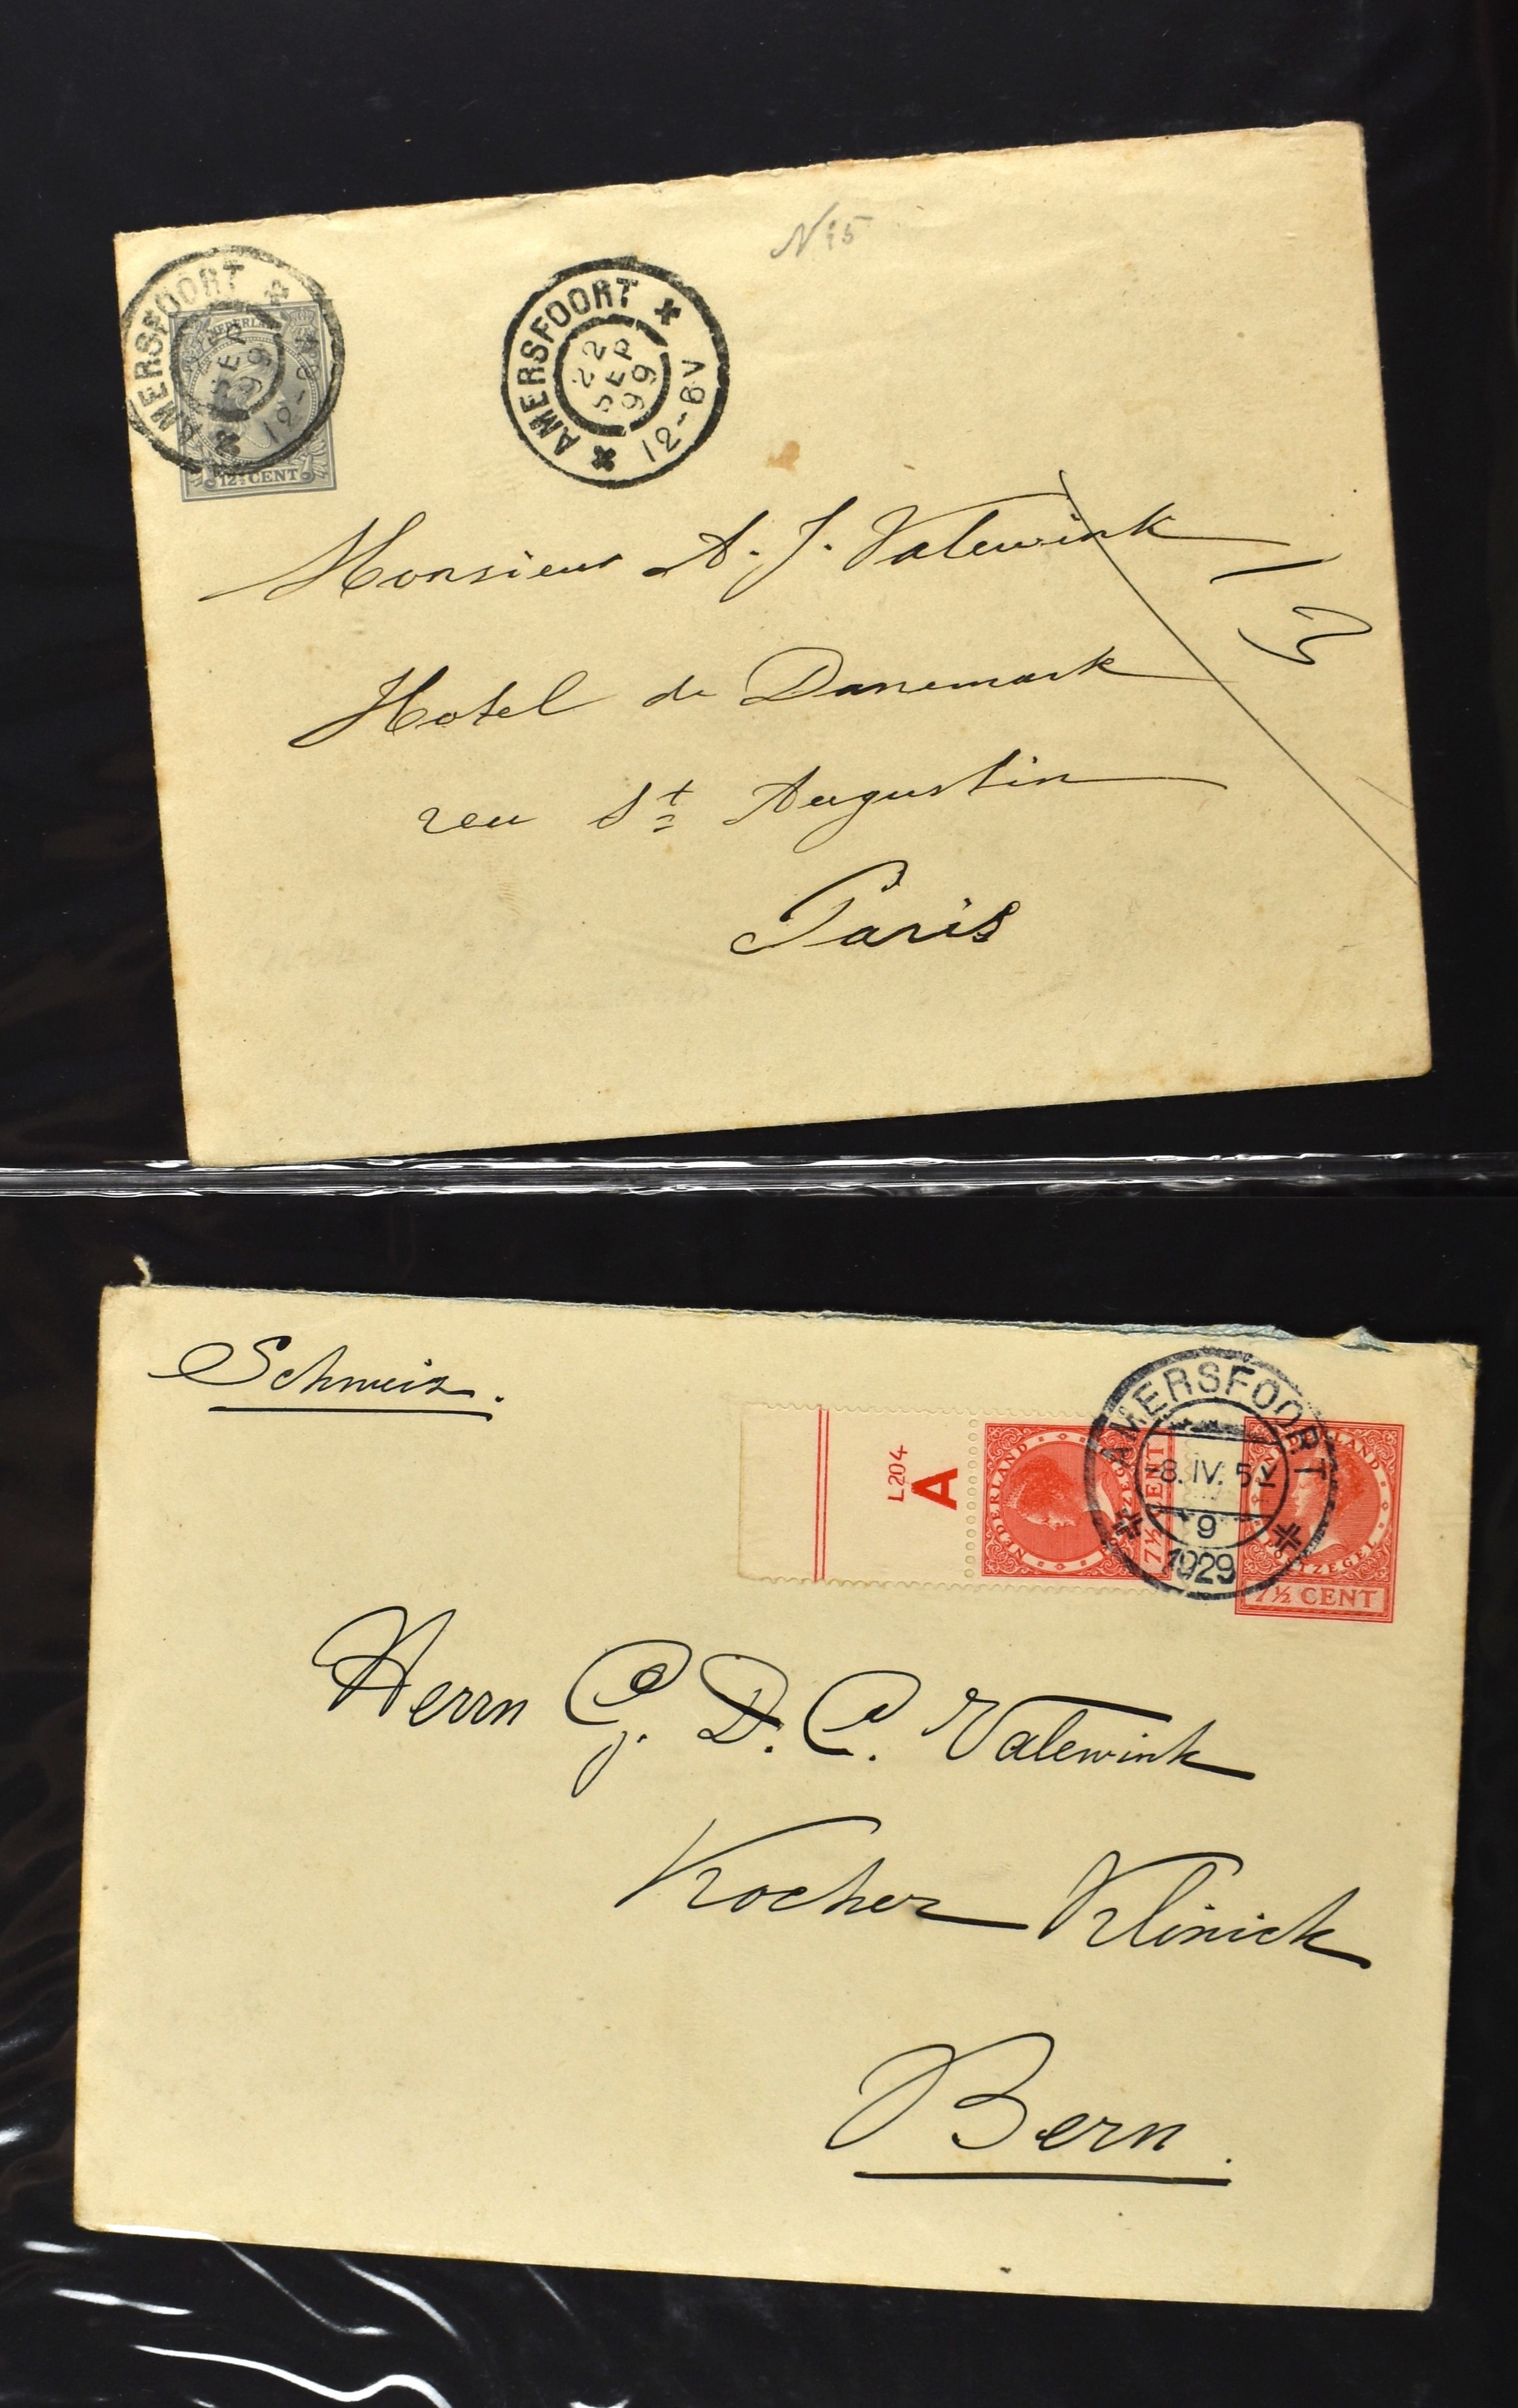 N 15
AMERSFOORT
22
SEP
99
12-6V
AMERSFOORT
SEP
99
NEDERLAND
12½ CENT
Monsieur A. J. Valewink
Hotel de Danemark
reu St Augustin
Paris
Schweiz.
L204
A
NEDERLAND
POSTZEGEL
7½ CENT
AMERSFOORT
-8.IV.5
9
1929
NEDERLAND
POSTZEGEL
7½ CENT
Herrn G. D. C. Valewink
Kocher Klinick
Bern.